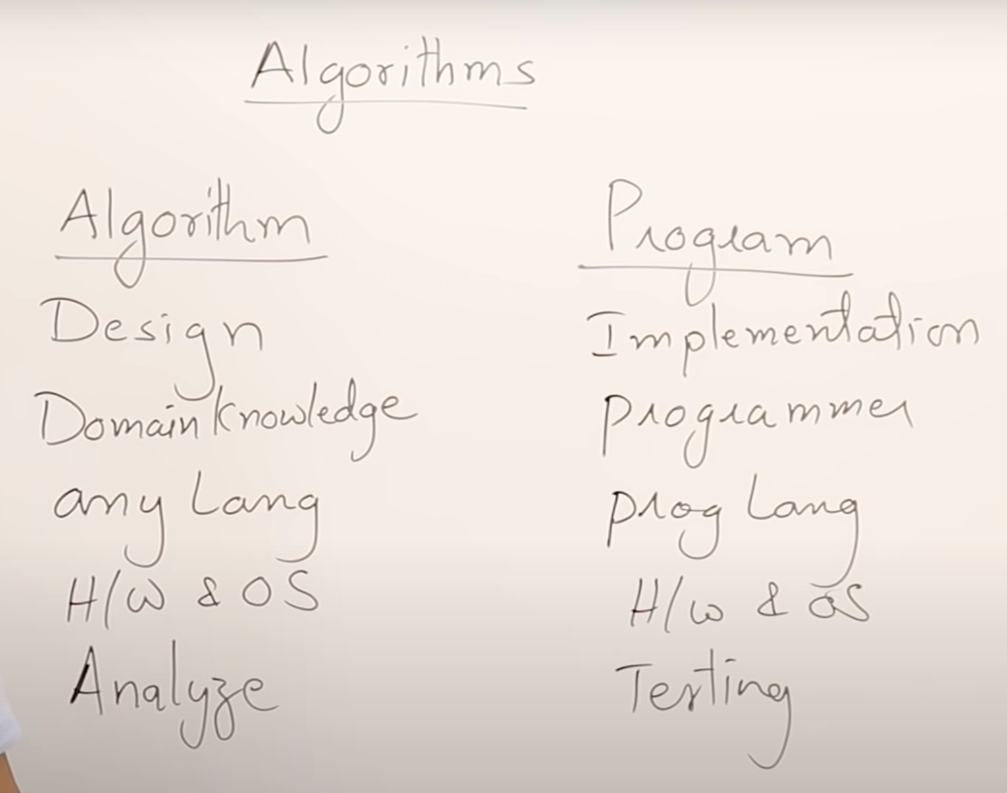 Algorithms
Algorithm
Design
Domain knowledge
any Lang
H/W & OS
Analyze
Program
Implementation
programmer
prog Lang
H/w & OS
Testing